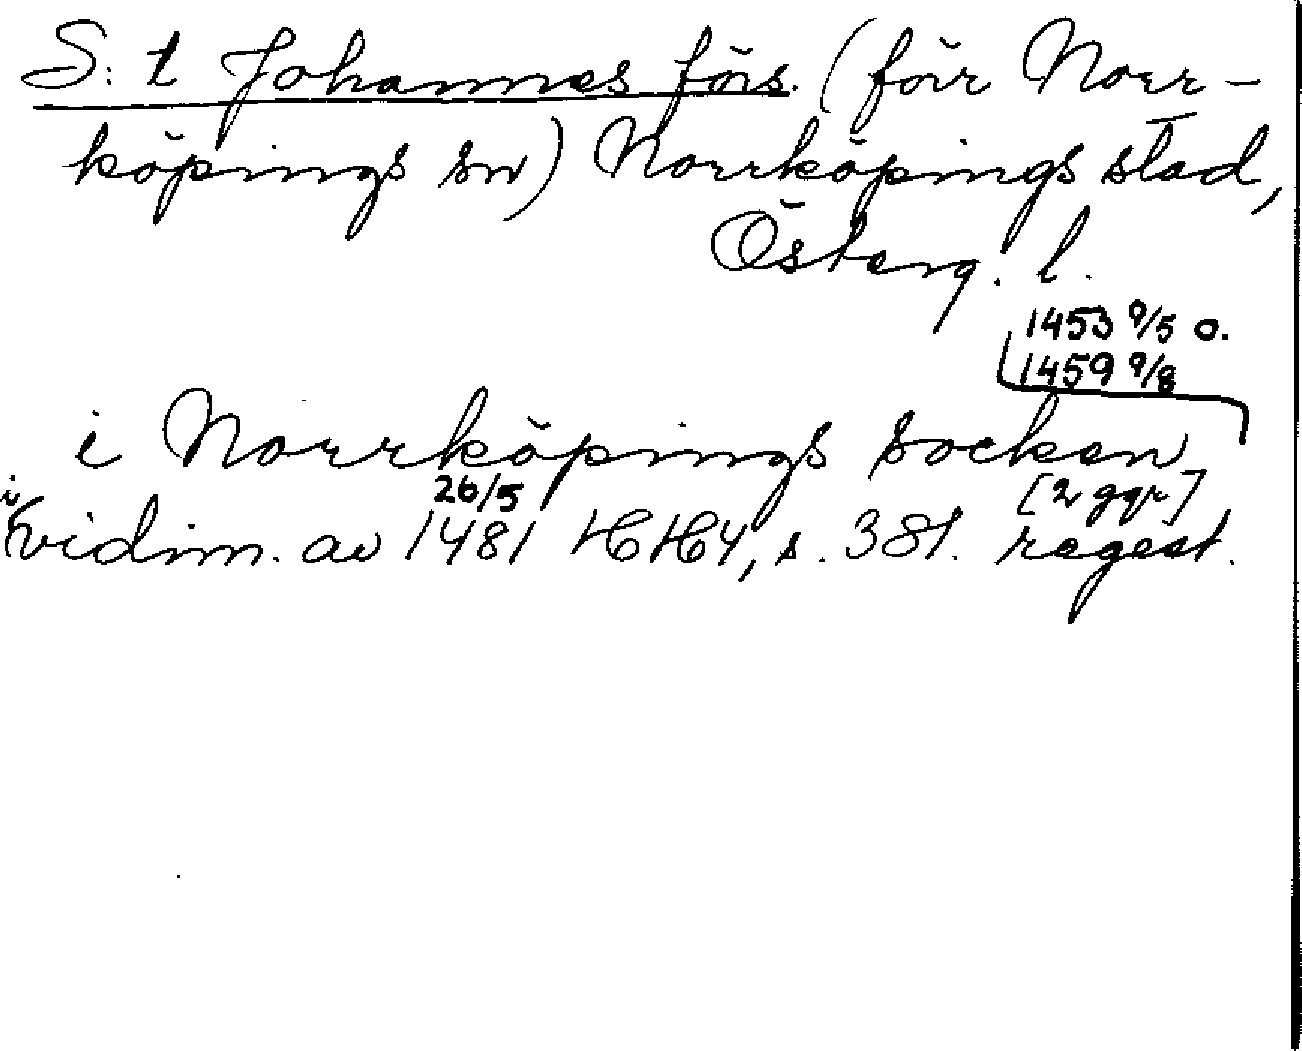 S:t Johannes förs. (förr Norr-
köpings sn) Norrköpings stad,
Österg. l.
1453 9/5 o.
1459 9/8
i Norrköpings socken
[2 ggr]
i vidim. av 26/5 1481 HH 4, s. 381. regest.